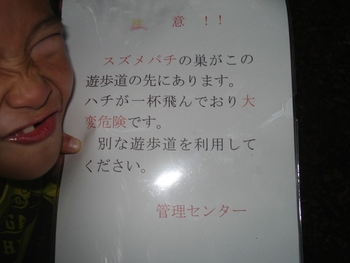 注 意 !!
スズメバチの巣がこの
遊歩道の先にあります。
ハチが一杯飛んでおり大
変危険です。
別な遊歩道を利用して
ください。
管理センター